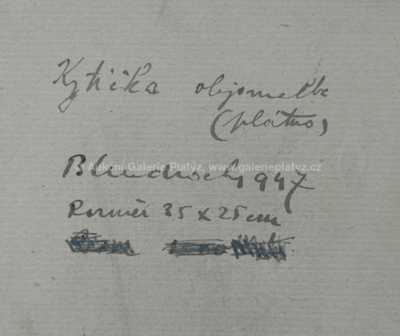 Kytička olejomalba
(plátno)
1947
Rozměr 35 x 25 cm
Aukční Galerie Platýz, www.galerieplatyz.cz